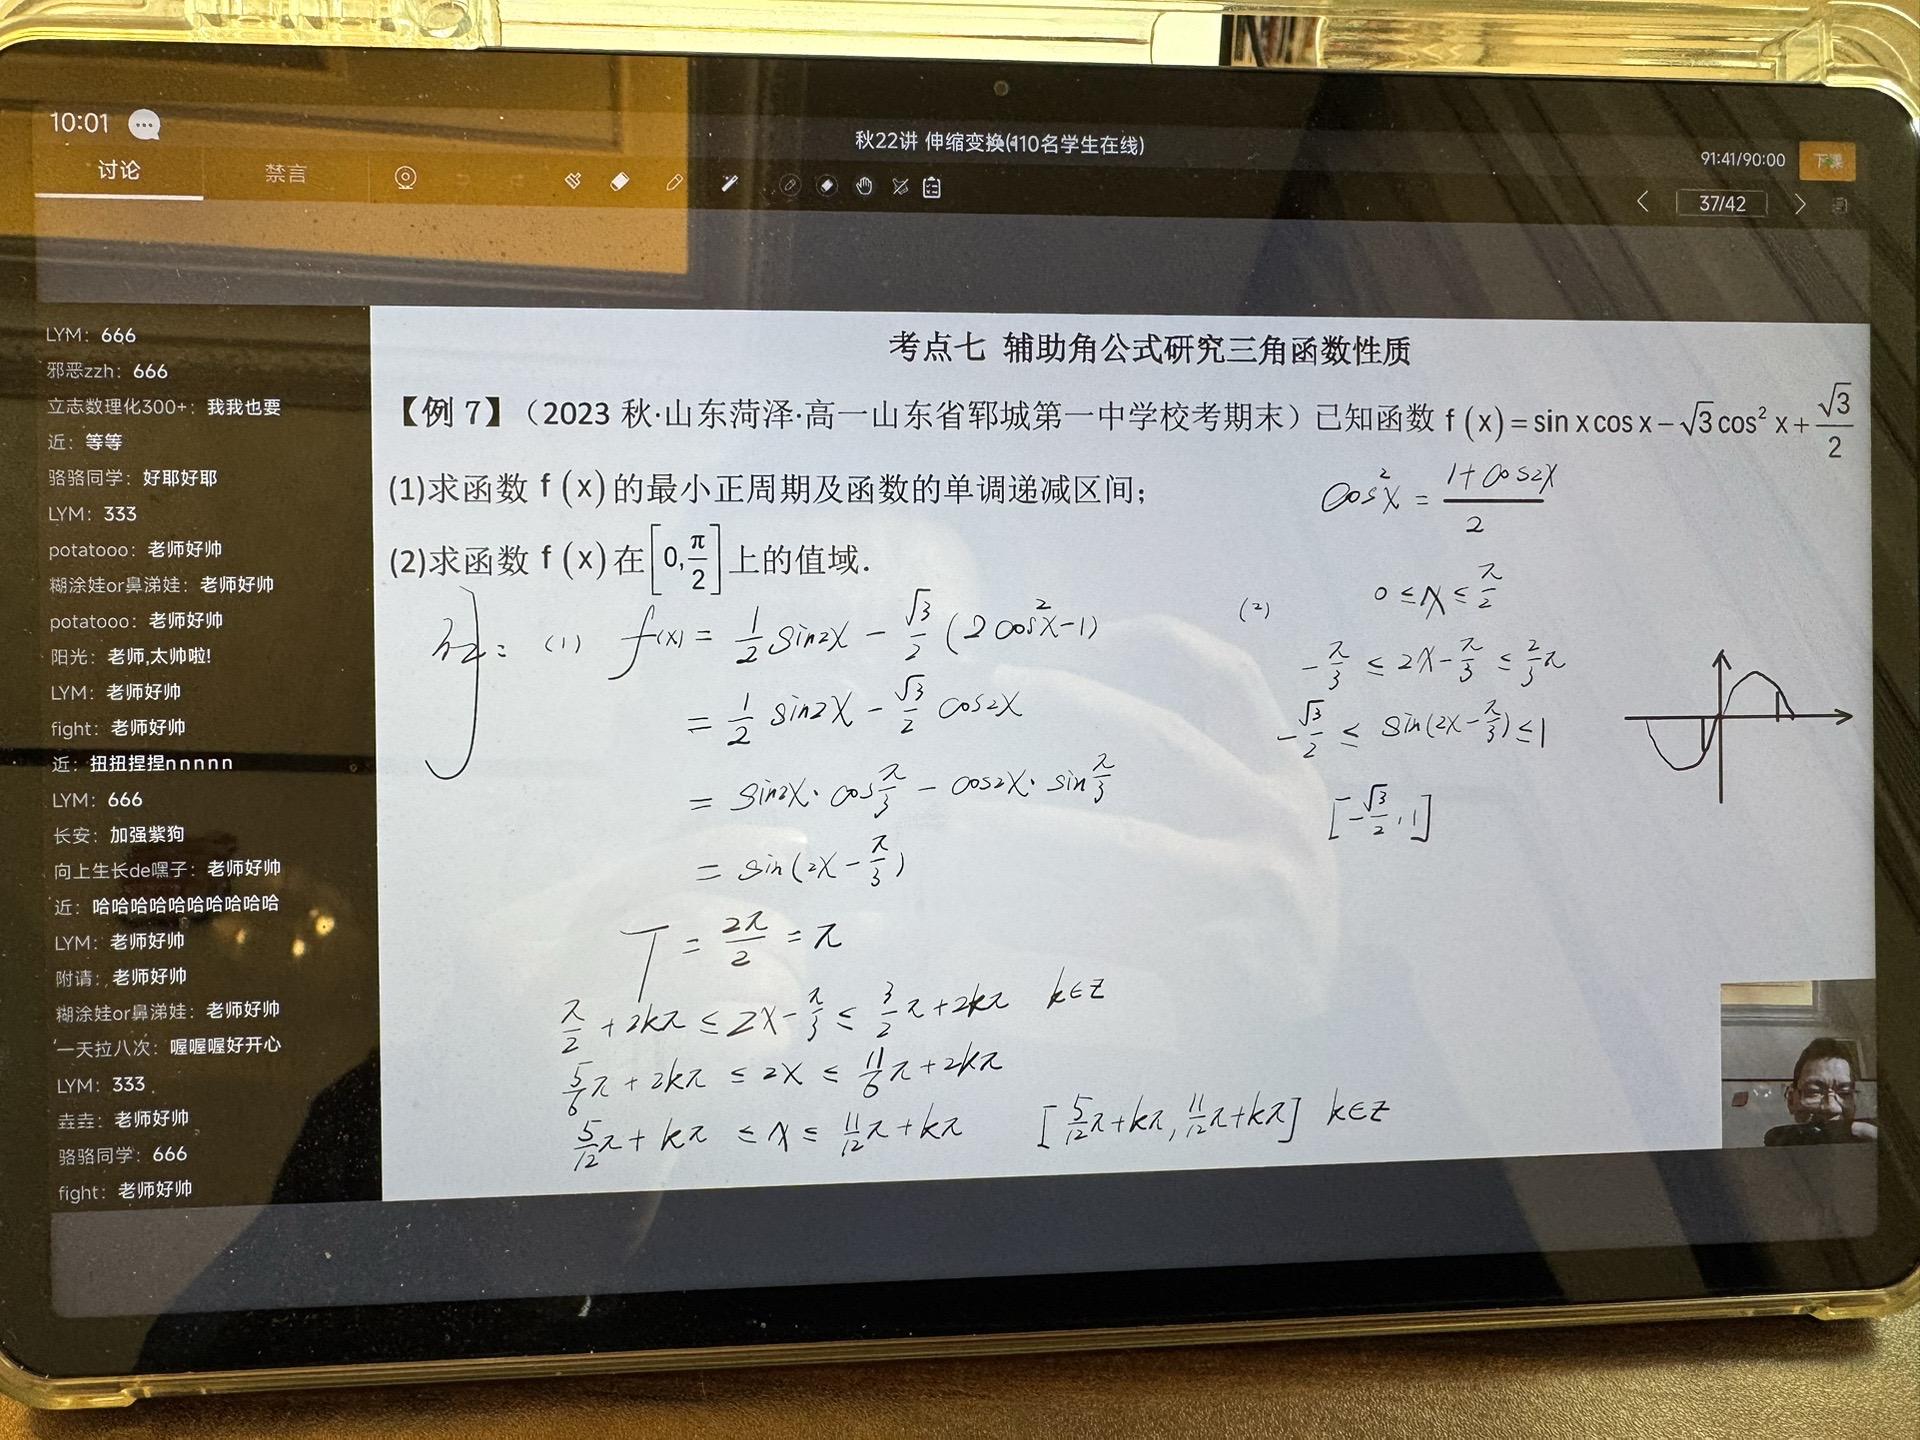 10:01
秋22讲 伸缩变换(110名学生在线)
91:41/90:00
下课
讨论
禁言
37/42
LYM：666
邪恶zzh：666
立志数理化300+：我我也要
近：等等
骆骆同学：好耶好耶
LYM：333
potatooo：老师好帅
糊涂娃or鼻涕娃：老师好帅
potatooo：老师好帅
阳光：老师,太帅啦!
LYM：老师好帅
fight：老师好帅
近：扭扭捏捏nnnnn
LYM：666
长安：加强紫狗
向上生长de嘿子：老师好帅
近：哈哈哈哈哈哈哈哈哈哈
LYM：老师好帅
附请：老师好帅
糊涂娃or鼻涕娃：老师好帅
一天拉八次：喔喔喔好开心
LYM：333
垚垚：老师好帅
骆骆同学：666
fight：老师好帅
考点七 辅助角公式研究三角函数性质
【例 7】（2023 秋·山东菏泽·高一山东省郓城第一中学校考期末）已知函数 f (x) = sin x cos x − √3 cos² x + √3/2
(1)求函数 f (x) 的最小正周期及函数的单调递减区间；
(2)求函数 f (x) 在 [0, π/2] 上的值域.
cos²x = (1+cos2x)/2
解: (1) f(x) = 1/2 sin2x − √3/2 (2cos²x−1)
= 1/2 sin2x − √3/2 cos2x
= sin2x · cos π/3 − cos2x · sin π/3
= sin(2x − π/3)
T = 2π/2 = π
π/2 + 2kπ ≤ 2x − π/3 ≤ 3/2 π + 2kπ k∈Z
5/6 π + 2kπ ≤ 2x ≤ 11/6 π + 2kπ
5/12 π + kπ ≤ x ≤ 11/12 π + kπ [5/12 π + kπ, 11/12 π + kπ] k∈Z
(2) 0 ≤ x ≤ π/2
−π/3 ≤ 2x − π/3 ≤ 2/3 π
−√3/2 ≤ sin(2x − π/3) ≤ 1
[−√3/2, 1]